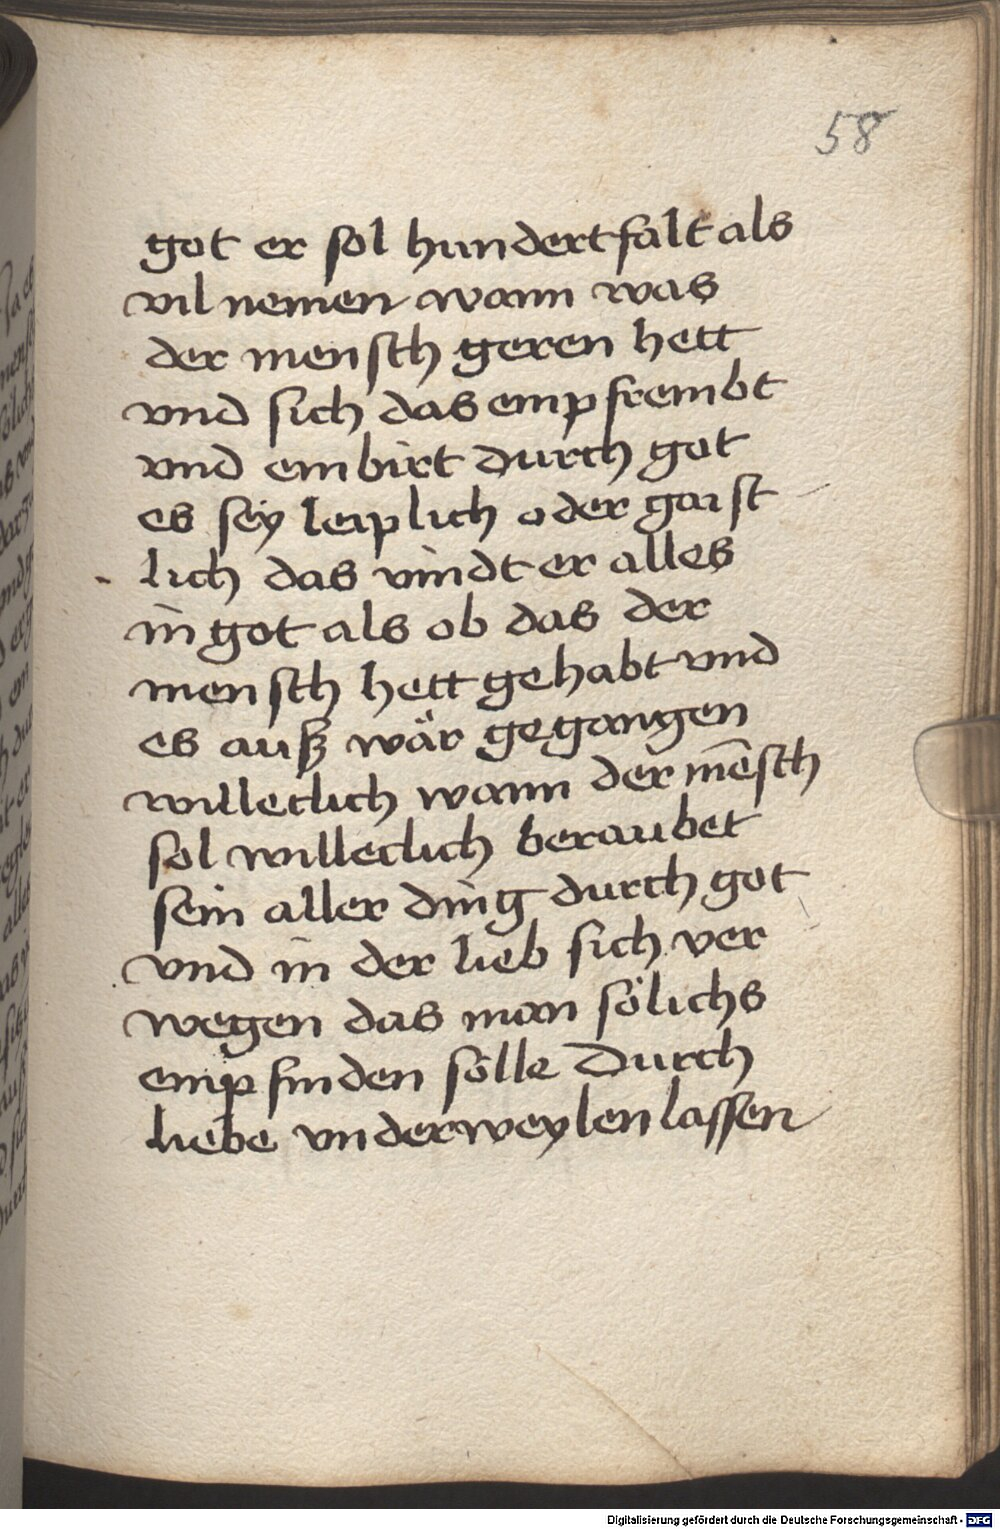 58
got er sol hundertfalt als
vil nemen wann was
der mensch geren hett
vnd sich das empfrembt
vnd embirt durch got
es sey leiplich oder gaist
lich das vindt er alles
in got als ob das der
mensch hett gehabt vnd
es auß wär gegangen
willetlich wann der mēsch
sol willeclich beraubet
sein aller ding durch got
vnd in der lieb sich ver
wegen das man sölichs
empfinden sölle Durch
liebe vnderweylen lassen
Digitalisierung gefördert durch die Deutsche Forschungsgemeinschaft - DFG